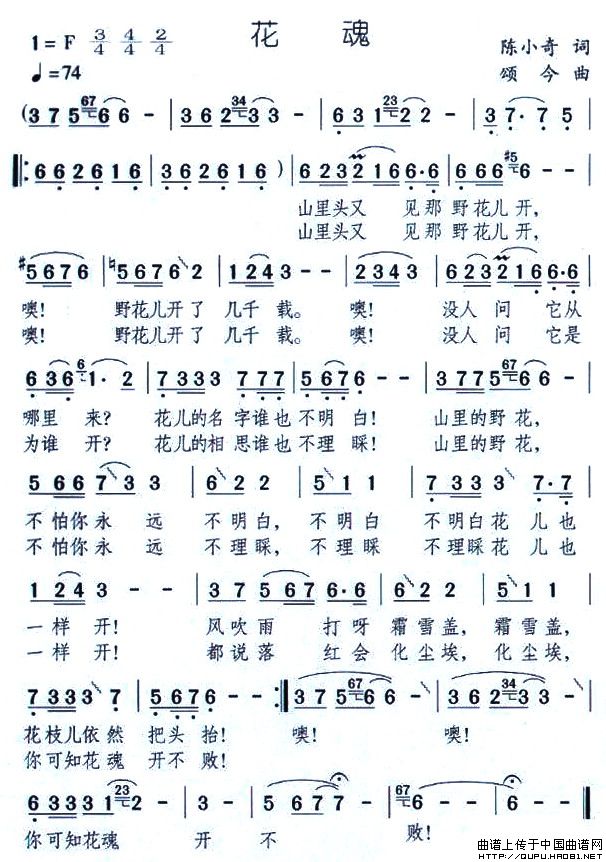 花 魂
1=F 3/4 4/4 2/4
陈小奇 词
♩=74
颂 今 曲
(3 7 5 67 6 6 - | 3 6 2 34 3 3 - | 6 3 1 23 2 2 - | 3 7· 7 5 |
6 6 2 6 1 6 | 3 6 2 6 1 6 | 6 - - ) | 6 2 3 2 1 6 6·6 | 6 6 6 #5 6 - - |
山里头又 见那野花儿开,
山里头又 见那野花儿开,
#5 6 7 6 | ♮5 5 6 7 6 2 | 1 2 4 3 - - | 2 3 4 3 | 6 2 3 2 1 6 6·6 |
噢! 野花儿开了 几千 载。 噢! 没人 问 它从
噢! 野花儿开了 几千 载。 噢! 没人 问 它是
6 3 6 6 1· 2 | 7 3 3 3 3 7 7 7 | 5 5 6 7 6 - | 3 7 7 5 67 6 6 |
哪里 来? 花儿的名 字谁也 不明 白! 山里的野 花,
为谁 开? 花儿的相 思谁也 不理 睬! 山里的野 花,
5 6 6 7 3 3 | 6 2 2 | 5 1 1 | 7 3 3 3 7·7 |
不怕你永 远 不明白, 不明白 不明白花 儿也
不怕你永 远 不理睬, 不理睬 不理睬花 儿也
1 2 4 3 - - | 3 7 5 6 7 6·6 | 6 2 2 | 5 1 1 |
一样 开! 风吹雨 打呀 霜雪盖, 霜雪盖,
一样 开! 都说落 红会 化尘埃, 化尘埃,
7 3 3 3 3 7 | 5 6 7 6 - - :| 3 7 5 67 6 6 - | 3 6 2 34 3 3 - |
花枝儿依然 把头 抬! 噢! 噢!
你可知花魂 开不 败!
6 3 3 3 3 1 23 2 | 5 - - - | 6 - - - | 67 6 - - - ‖
你可知花魂 开 不 败!
曲谱上传于中国曲谱网
HTTP://QUPU.HAO81.NET